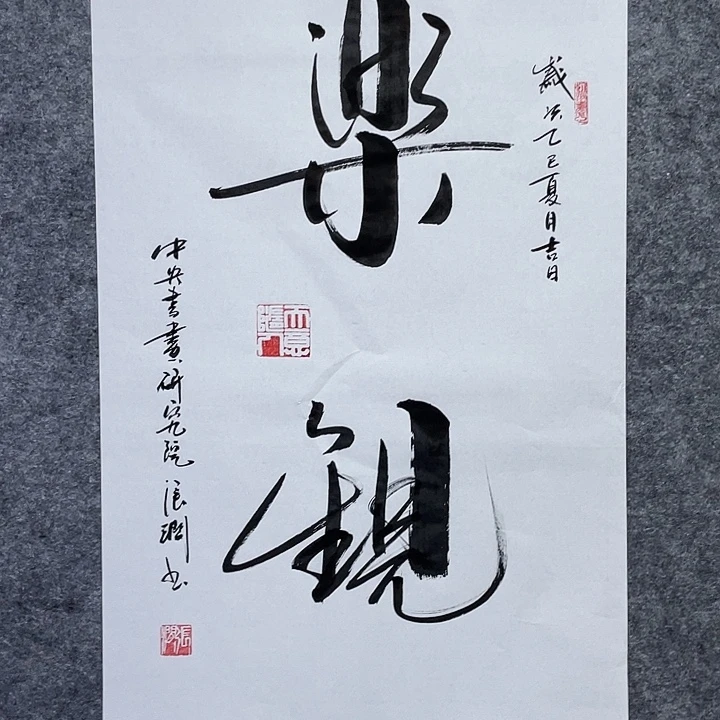 歲次乙巳夏月吉日
樂觀
中央書畫研究院